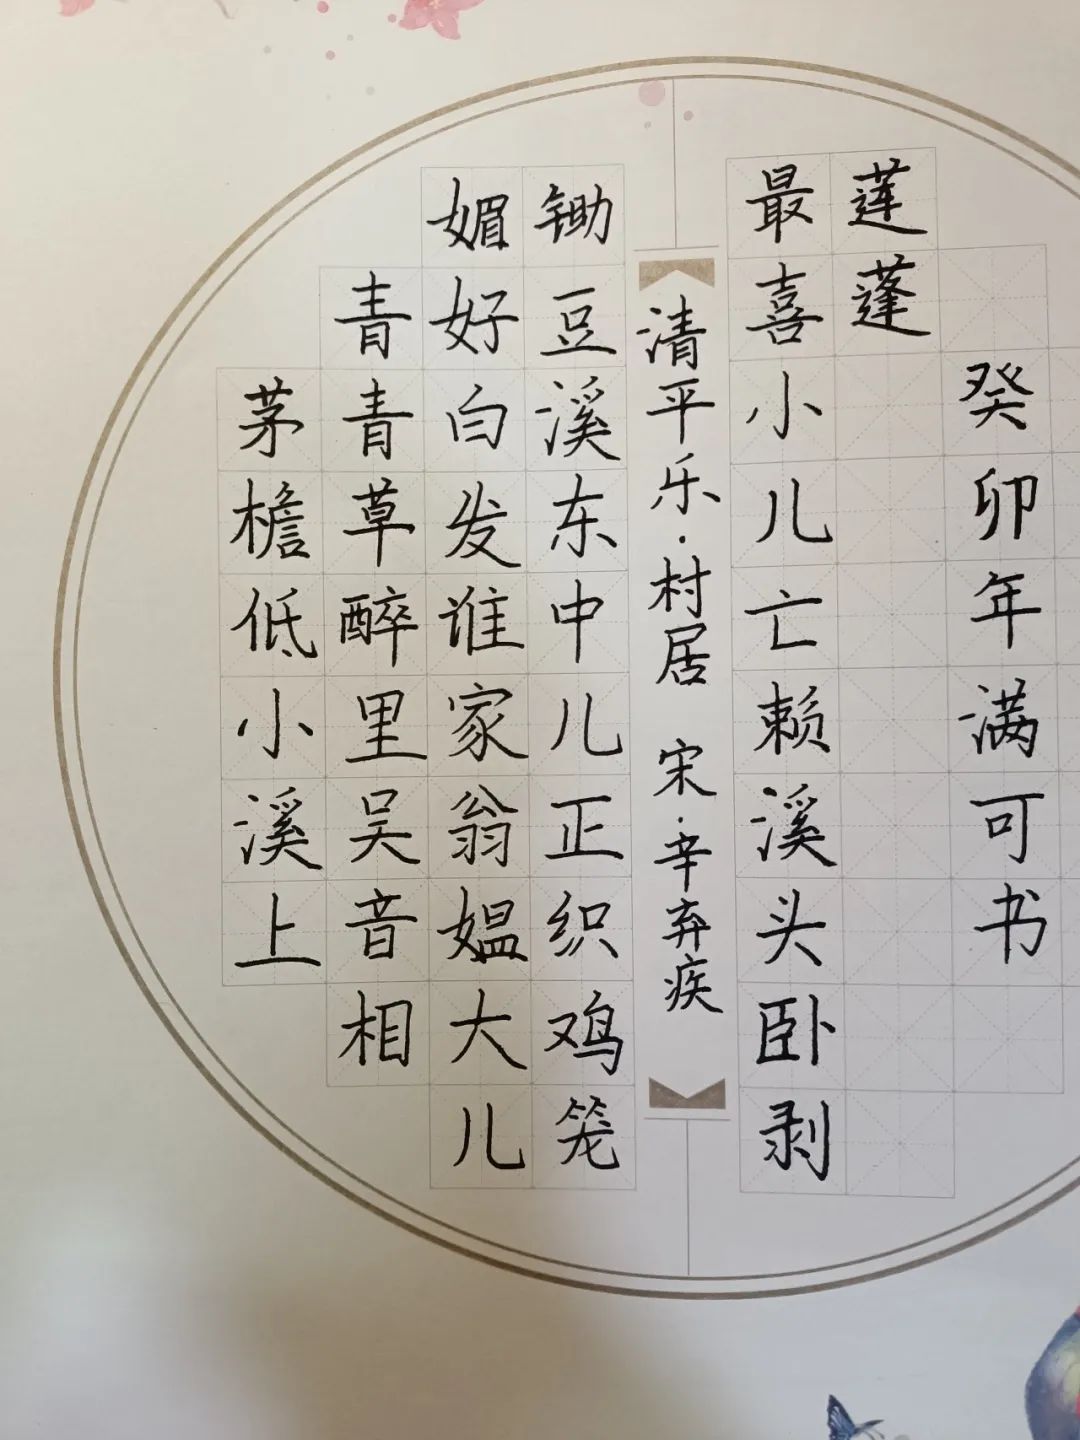 茅檐低小溪上
青青草醉里吴音相
媚好白发谁家翁媪大儿
锄豆溪东中儿正织鸡笼
清平乐·村居 宋·辛弃疾
最喜小儿亡赖溪头卧剥
莲蓬
癸卯年满可书